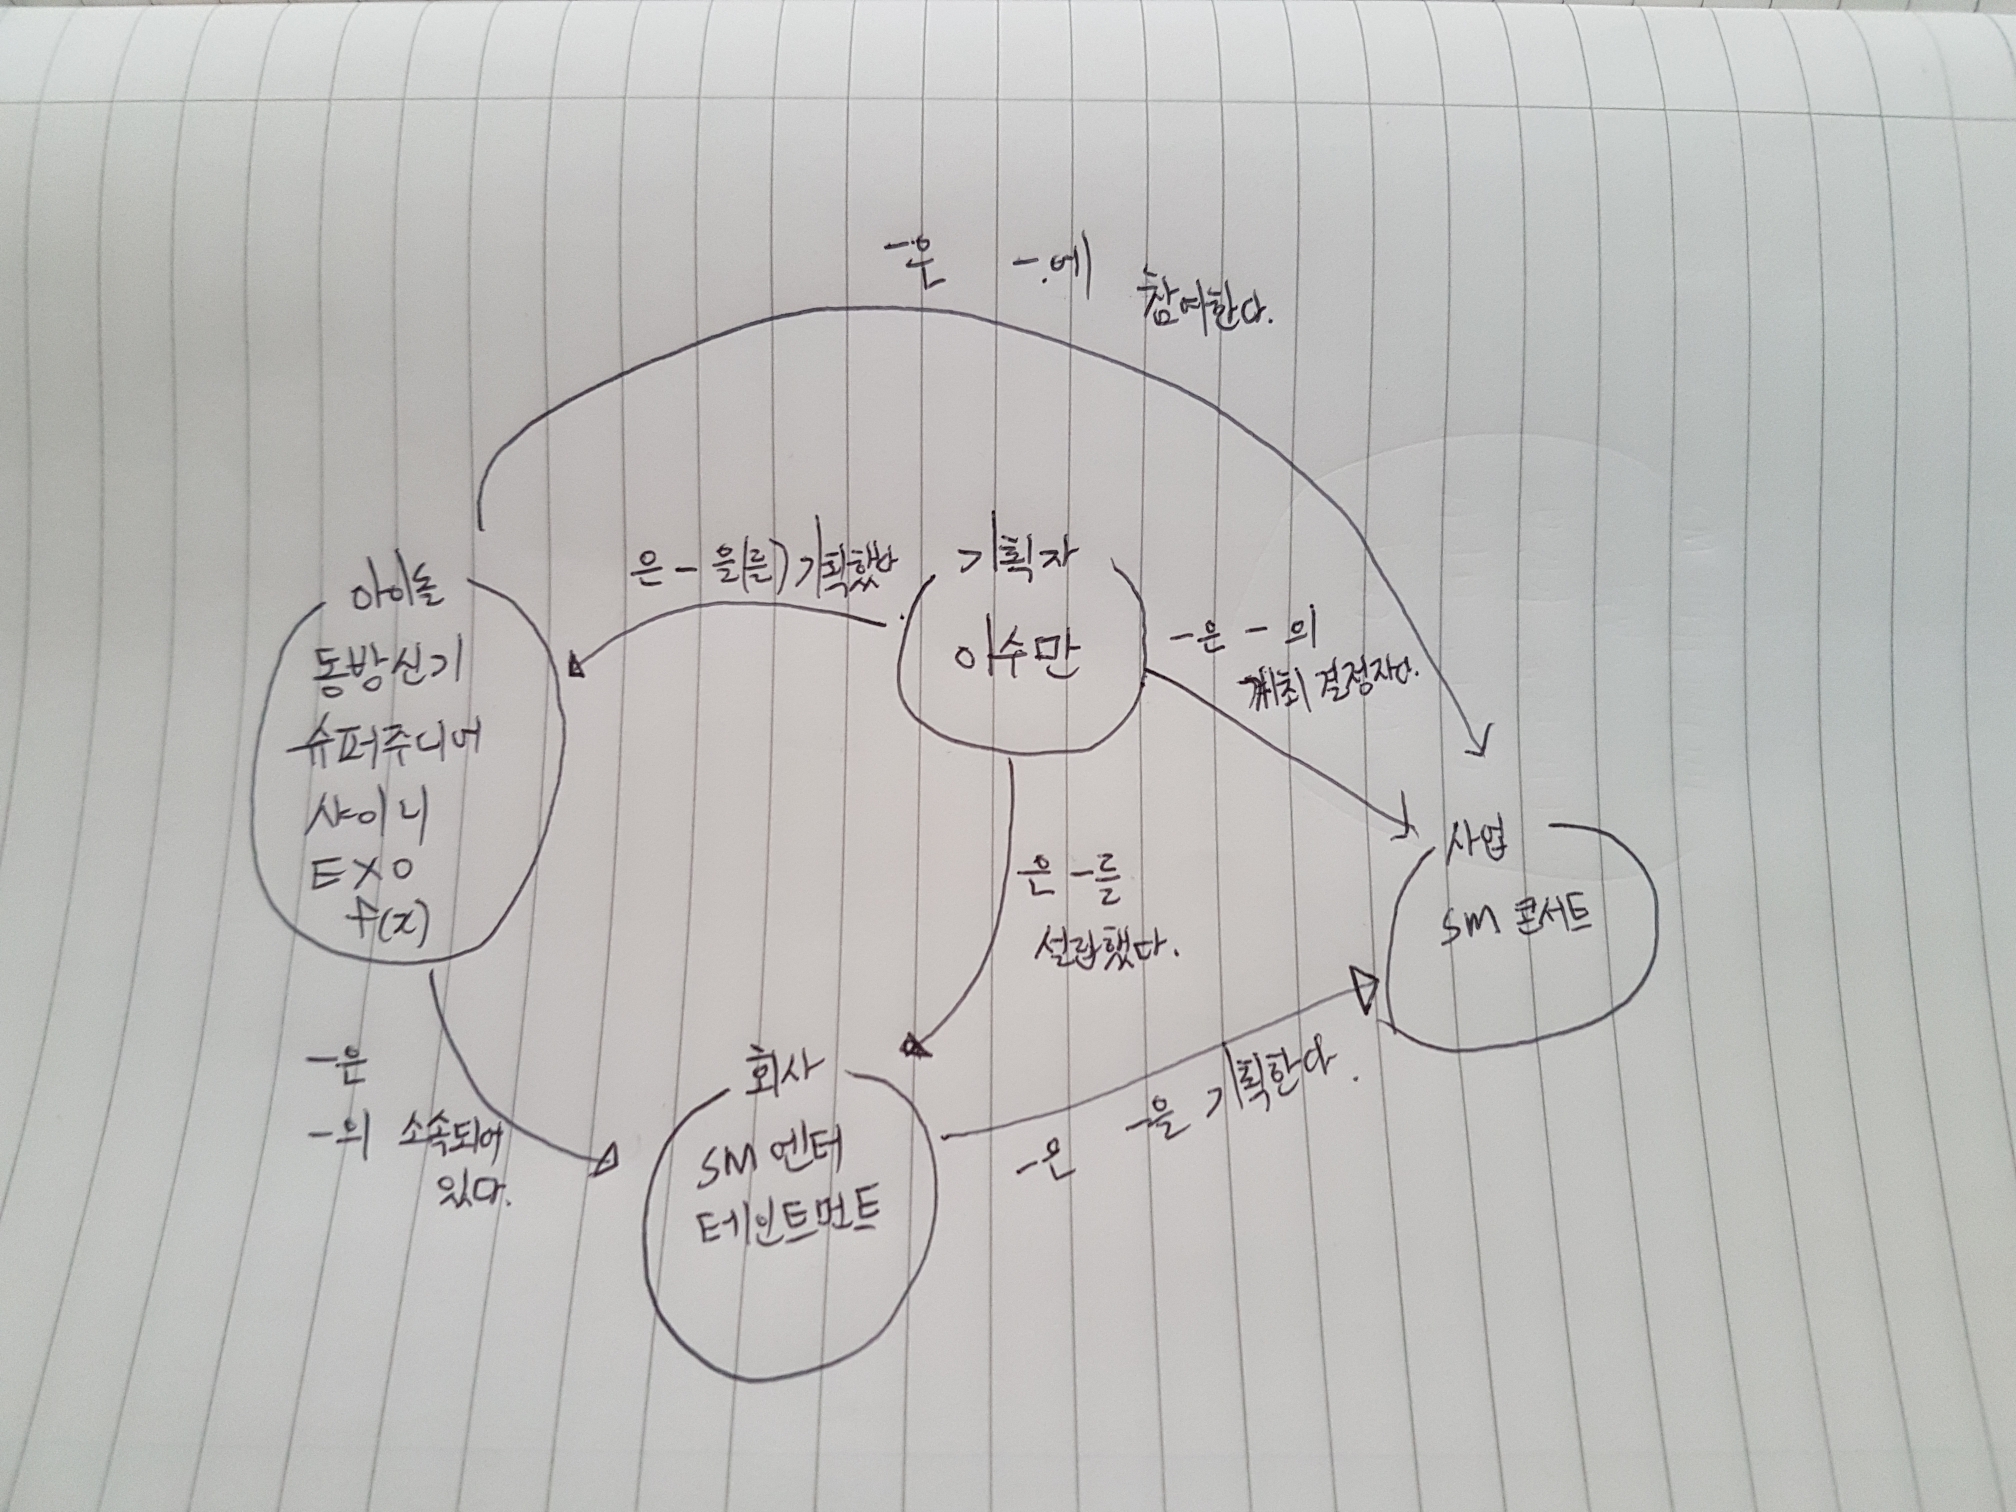 -은 -에 참여한다.
은 - 을(를) 기획했다
기획자
이수만
-은 - 의
개최 결정자다.
아이돌
동방신기
슈퍼주니어
샤이니
EXO
f(x)
은 -를
설립했다.
사업
SM 콘서트
-은
-의 소속되어
있다.
회사
SM 엔터
테인트먼트
-은 -을 기획한다.